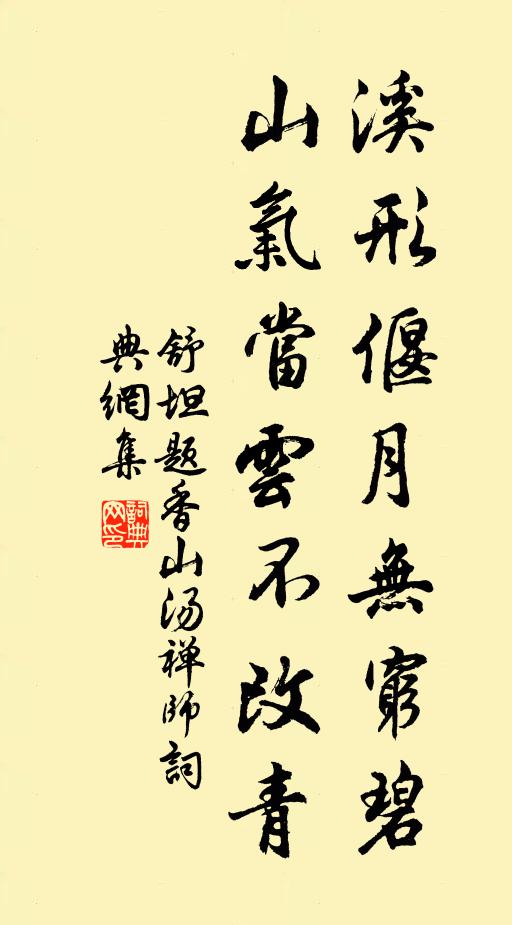 溪形偃月無窮碧
山氣當雲不改青
舒坦題香山湯禅師詞
典網集
詞典网印